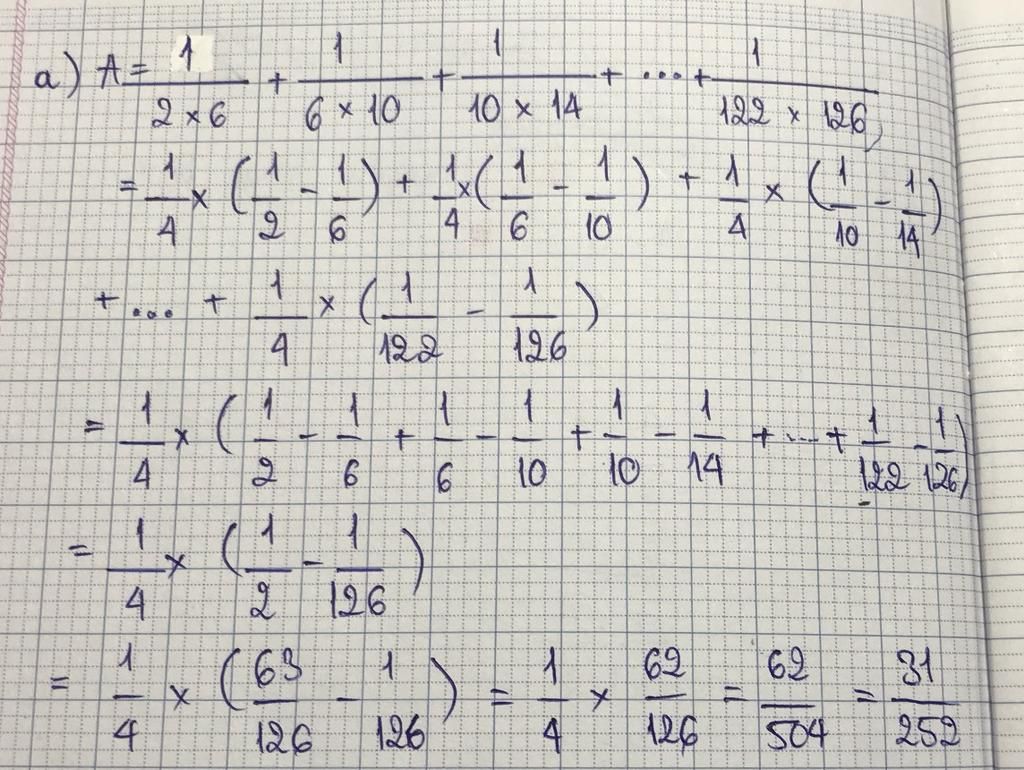 a) A = 1/(2 × 6) + 1/(6 × 10) + 1/(10 × 14) + ... + 1/(122 × 126)
= 1/4 × (1/2 - 1/6) + 1/4 × (1/6 - 1/10) + 1/4 × (1/10 - 1/14)
+ ... + 1/4 × (1/122 - 1/126)
= 1/4 × (1/2 - 1/6 + 1/6 - 1/10 + 1/10 - 1/14 + ... + 1/122 - 1/126)
= 1/4 × (1/2 - 1/126)
= 1/4 × (63/126 - 1/126) = 1/4 × 62/126 = 62/504 = 31/252